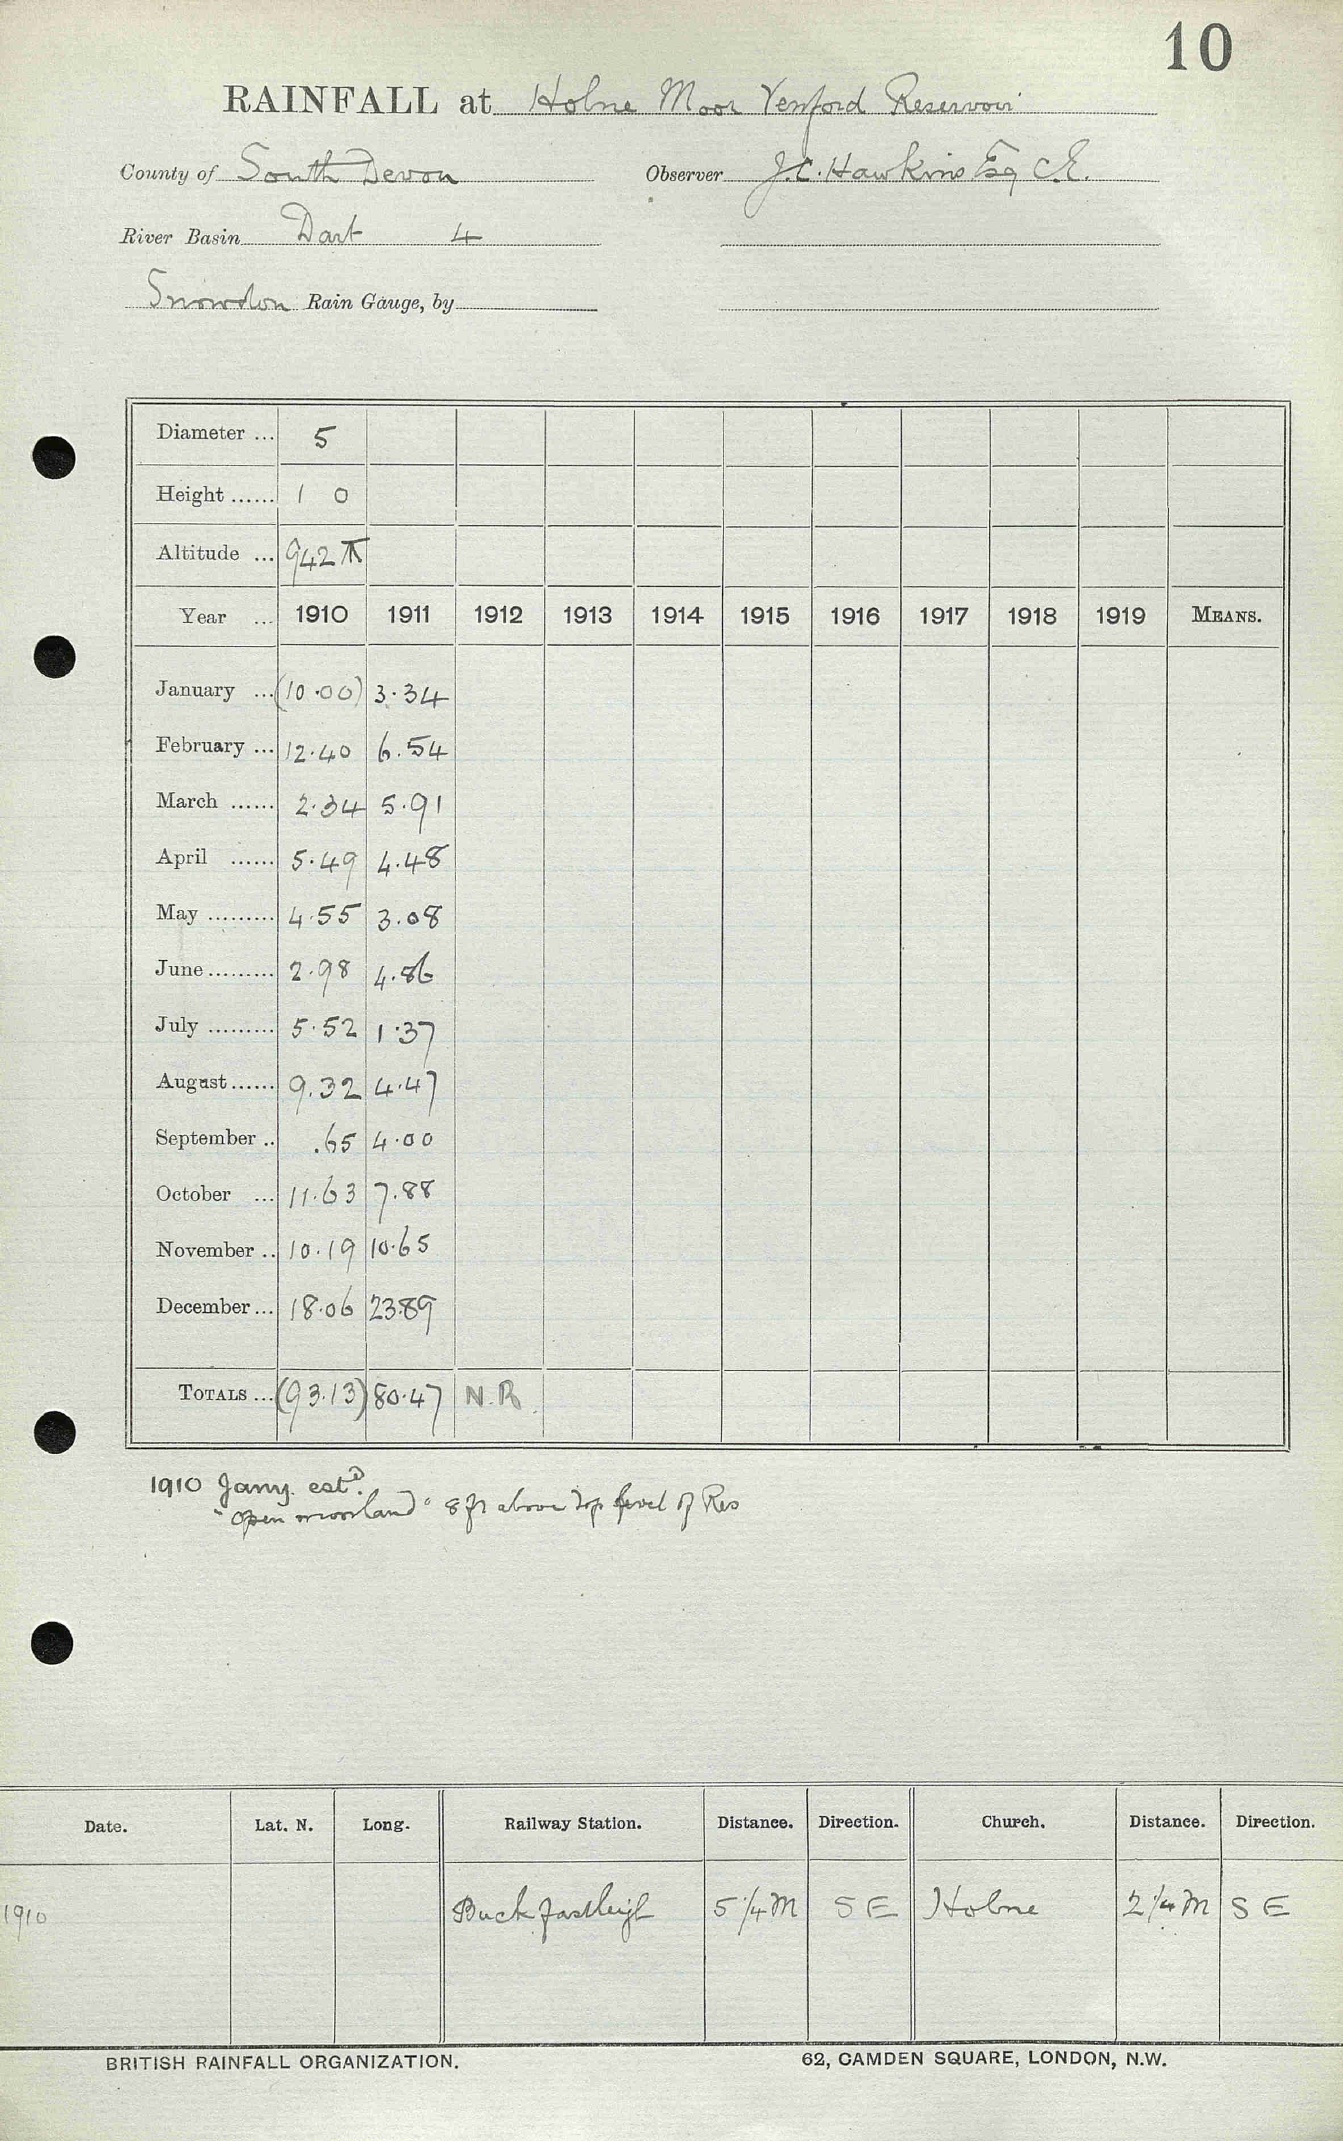 10
RAINFALL at Holne Moor Venford Reservoir
County of South Devon Observer J.C. Hawkins Esq C.E.
River Basin Dart 4
Snowdon Rain Gauge, by
Diameter ... 5
Height ...... 1 0
Altitude ... 942
Year ... 1910 1911 1912 1913 1914 1915 1916 1917 1918 1919 MEANS.
January ... (10.00) 3.34
February ... 12.40 6.54
March ...... 2.34 5.91
April ...... 5.49 4.48
May ......... 4.55 3.08
June ......... 2.98 4.86
July ......... 5.52 1.37
August ...... 9.32 4.47
September .. .65 4.00
October ... 11.63 7.88
November .. 10.19 10.65
December ... 18.06 23.89
TOTALS ... (93.13) 80.47 N.R.
1910 Jany. estd.
"Open moorland" 8 ft above top level of Res
Date. Lat. N. Long. Railway Station. Distance. Direction. Church. Distance. Direction.
1910 Buckfastleigh 5 1/4 M S E Holne 2 1/4 M S E
BRITISH RAINFALL ORGANIZATION. 62, CAMDEN SQUARE, LONDON, N.W.